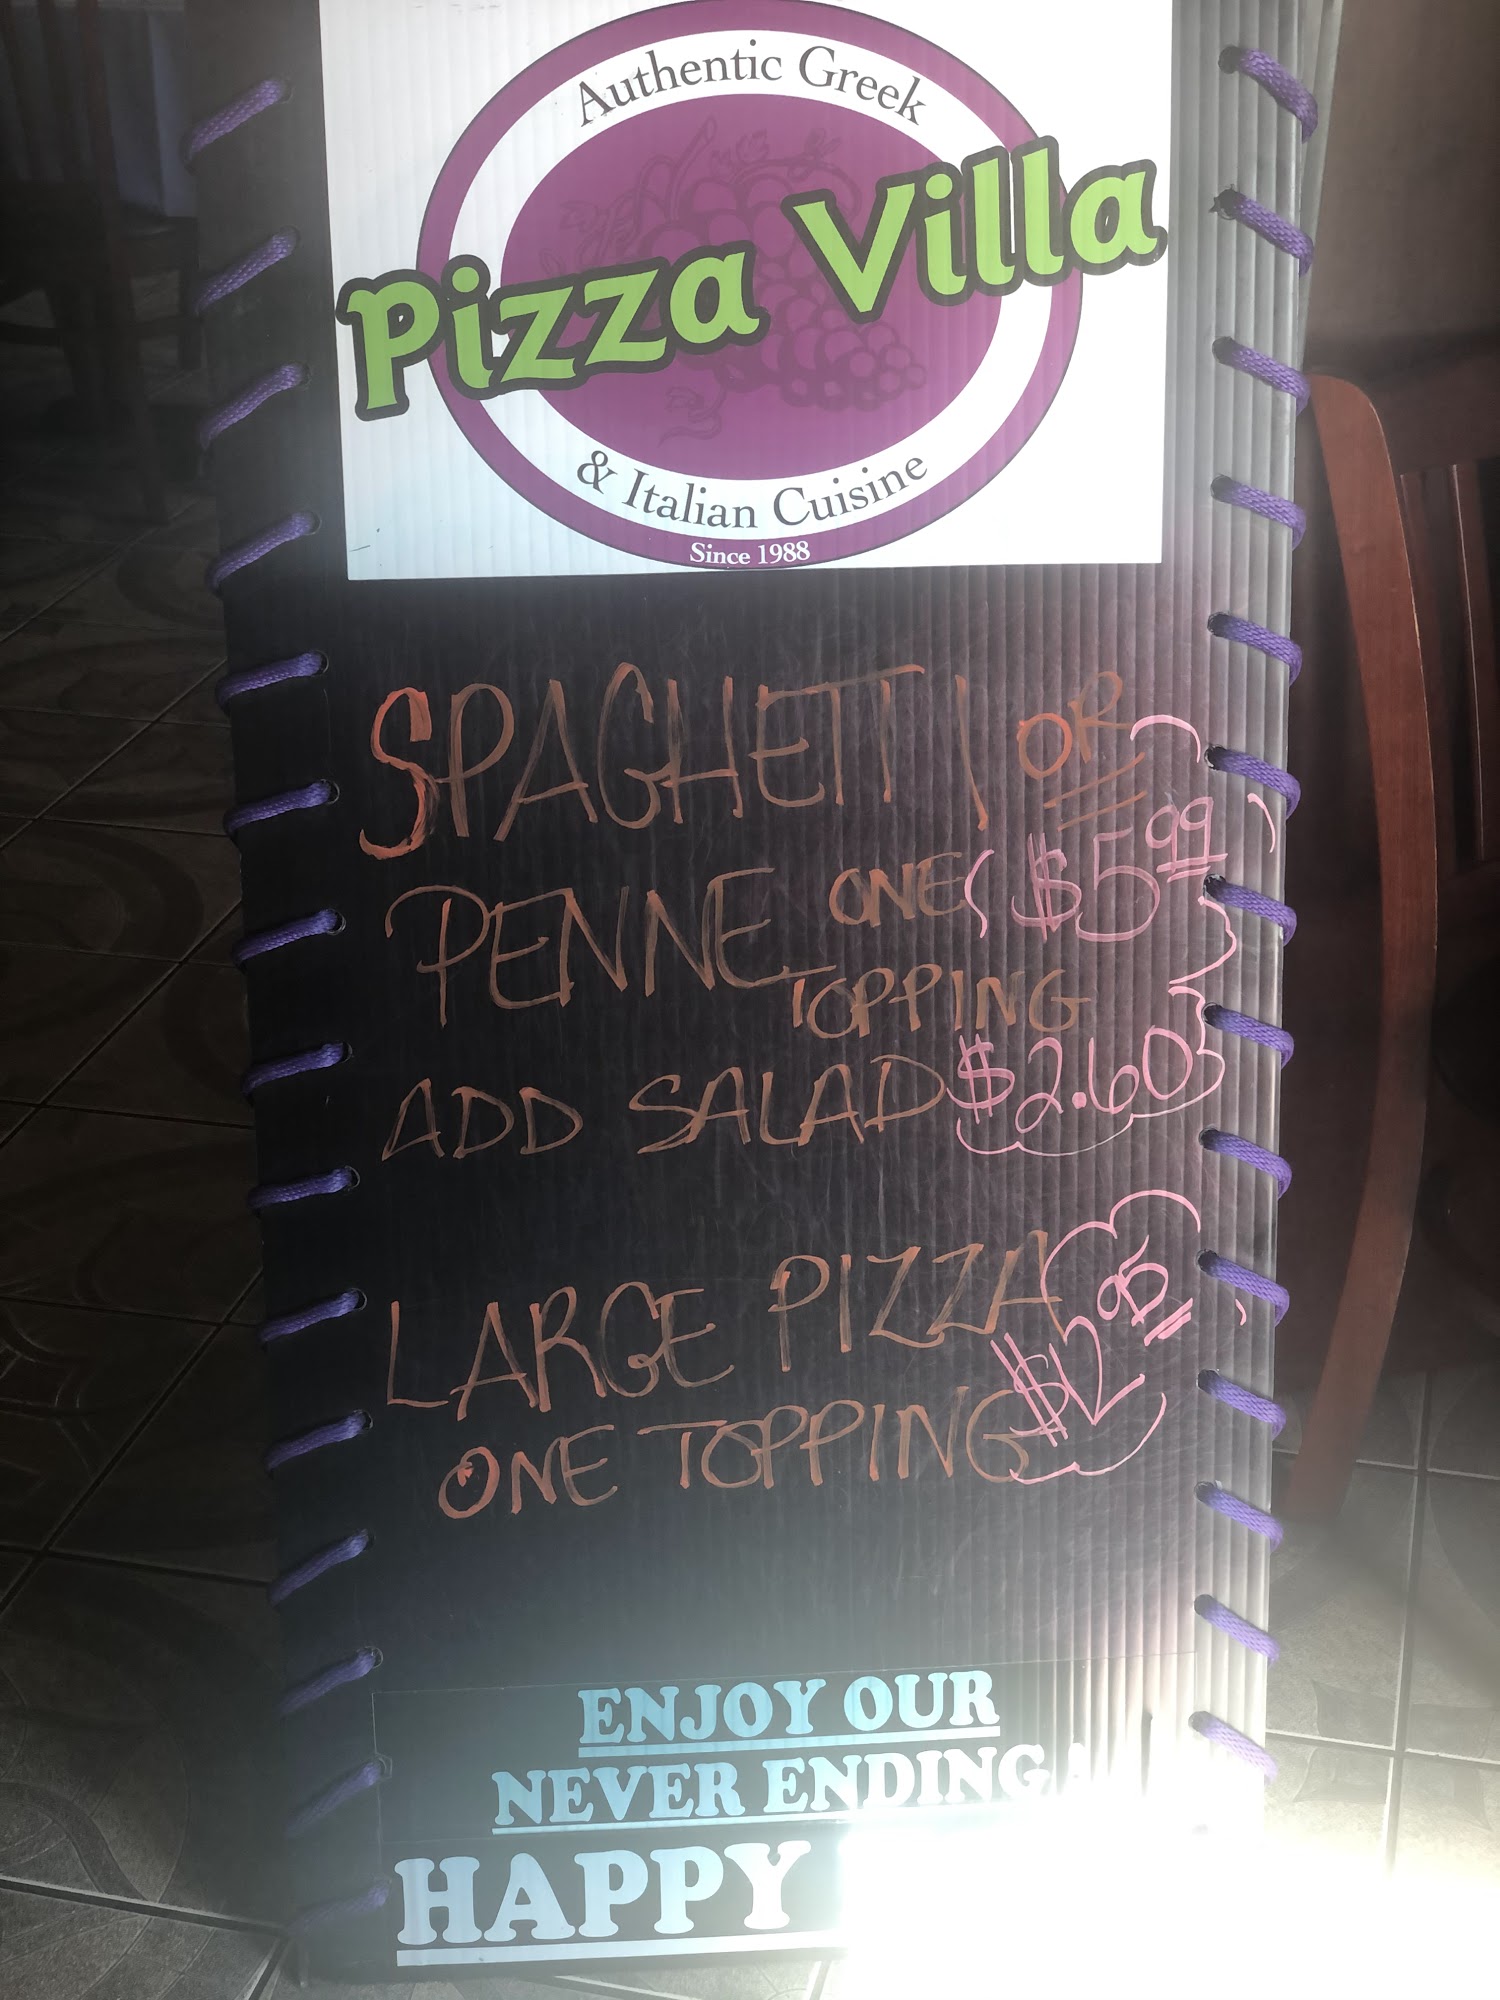 Authentic Greek
Pizza Villa
& Italian Cuisine
Since 1988
SPAGHETTI OR
PENNE ONE $5.99
TOPPING
ADD SALAD $2.60
LARGE PIZZA $12.95
ONE TOPPING
ENJOY OUR
NEVER ENDING
HAPPY